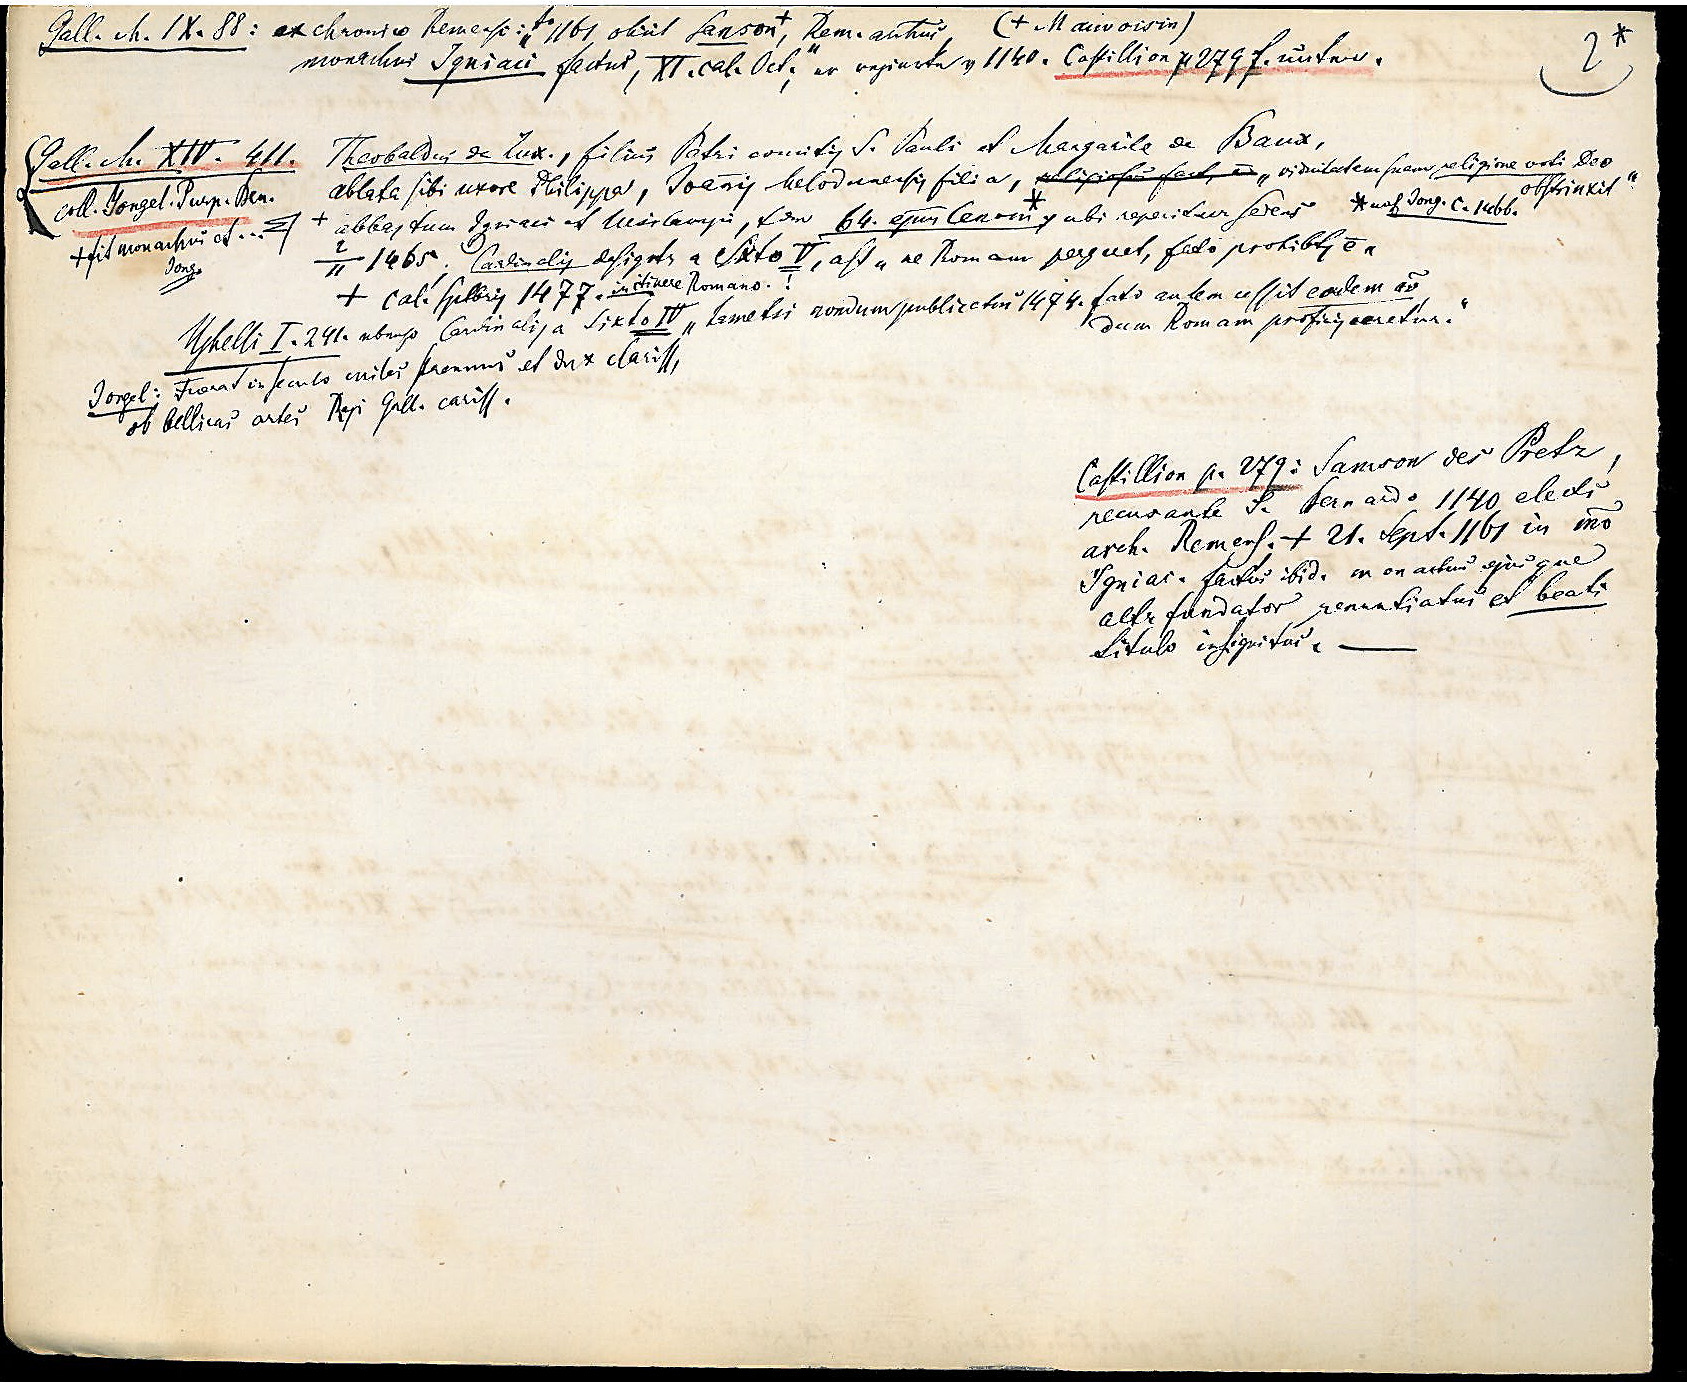 2*
Gall. ch. IX. 88: ex chronico Remensi: „1161 obiit Sanson+, Rem. antius, (+ Mauvoisin)
monachus Igniaci factus, XI. cal. Oct.“, er regierte 1140. Castillion p 279 f. unten.
Gall. ch. XIV. 411. Theobaldus de Lux., filius Petri comitis S. Pauli et Margarite de Baux,
coll. Jongel. Purp. Ben. ablata sibi uxore Philippa, Joannis Melodunensis filia, „viduitatem suam religione voti Deo
obstrinxit“
+ fit monachus et ... Jong. + abbatum Igniaci et Ursicampi, dem 64. epus Cenom* ubi reperitur sedens * nach Jong. c. 1466.
2/11 1465. Cardinalis designatr a Sixto V, ast „ne Romam pergeret, fato prohibitus ē“
+ cal. Sptbris 1477. in itinere Romano. !
Ughelli I. 241. ebenso Cardinalis a Sixto IV „tametsi nondum publicatus 1474. fato autem cessit eodem aō
dum Romam proficisceretur.“
Jongel: Fuerat in seculo miles strenuus et dux clariss,
ob bellicas artes Regi Gall. cariss.
Castillion p. 279: Samson des Pretz,
recusante S. Bernardo 1140 electus
arch. Remens. + 21. Sept. 1161 in mō
Igniac. factus ibid. monachus ejusque
altr fundator renuntiatus et beati
titulo insignitus. —